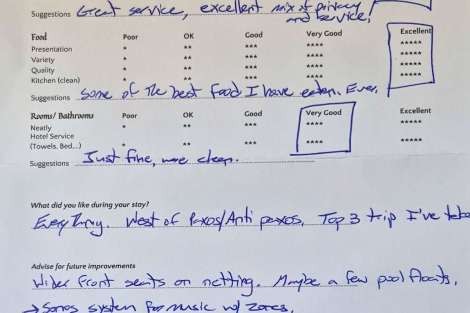 Suggestions Great service, excellent mix of privacy and service,
Food Poor OK Good Very Good Excellent
Presentation * ** *** **** *****
Variety * ** *** **** *****
Quality * ** *** **** *****
Kitchen (clean) * ** *** **** *****
Suggestions Some of the best food I have eaten. Ever.
Rooms/ Bathrooms Poor OK Good Very Good Excellent
Neatly * ** *** **** *****
Hotel Service
(Towels, Bed...) * ** *** **** *****
Suggestions Just fine, were clean.
What did you like during your stay?
Everything. West of Paxos/Anti paxos. Top 3 trip I've
Advise for future improvements
Wider front seats on netting. Maybe a few pool floats.
→ Sonos system for music w/ zones.